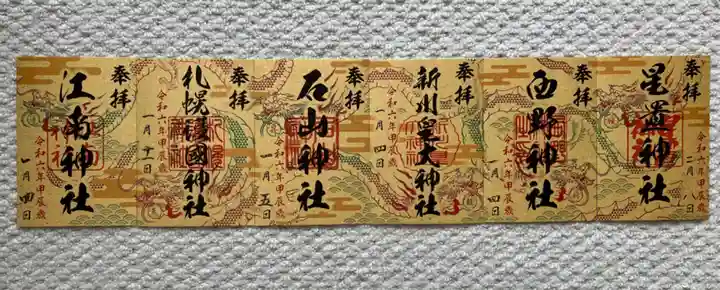 奉拝
星置神社
令和六年甲辰歳
二月八日
奉拝
西野神社
令和六年甲辰歳
一月四日
奉拝
新川皇大神社
令和六年甲辰歳
一月四日
奉拝
石山神社
令和六年甲辰歳
一月五日
奉拝
札幌護國神社
令和六年甲辰歳
奉拝
江南神社
令和六年甲辰歳
一月四日